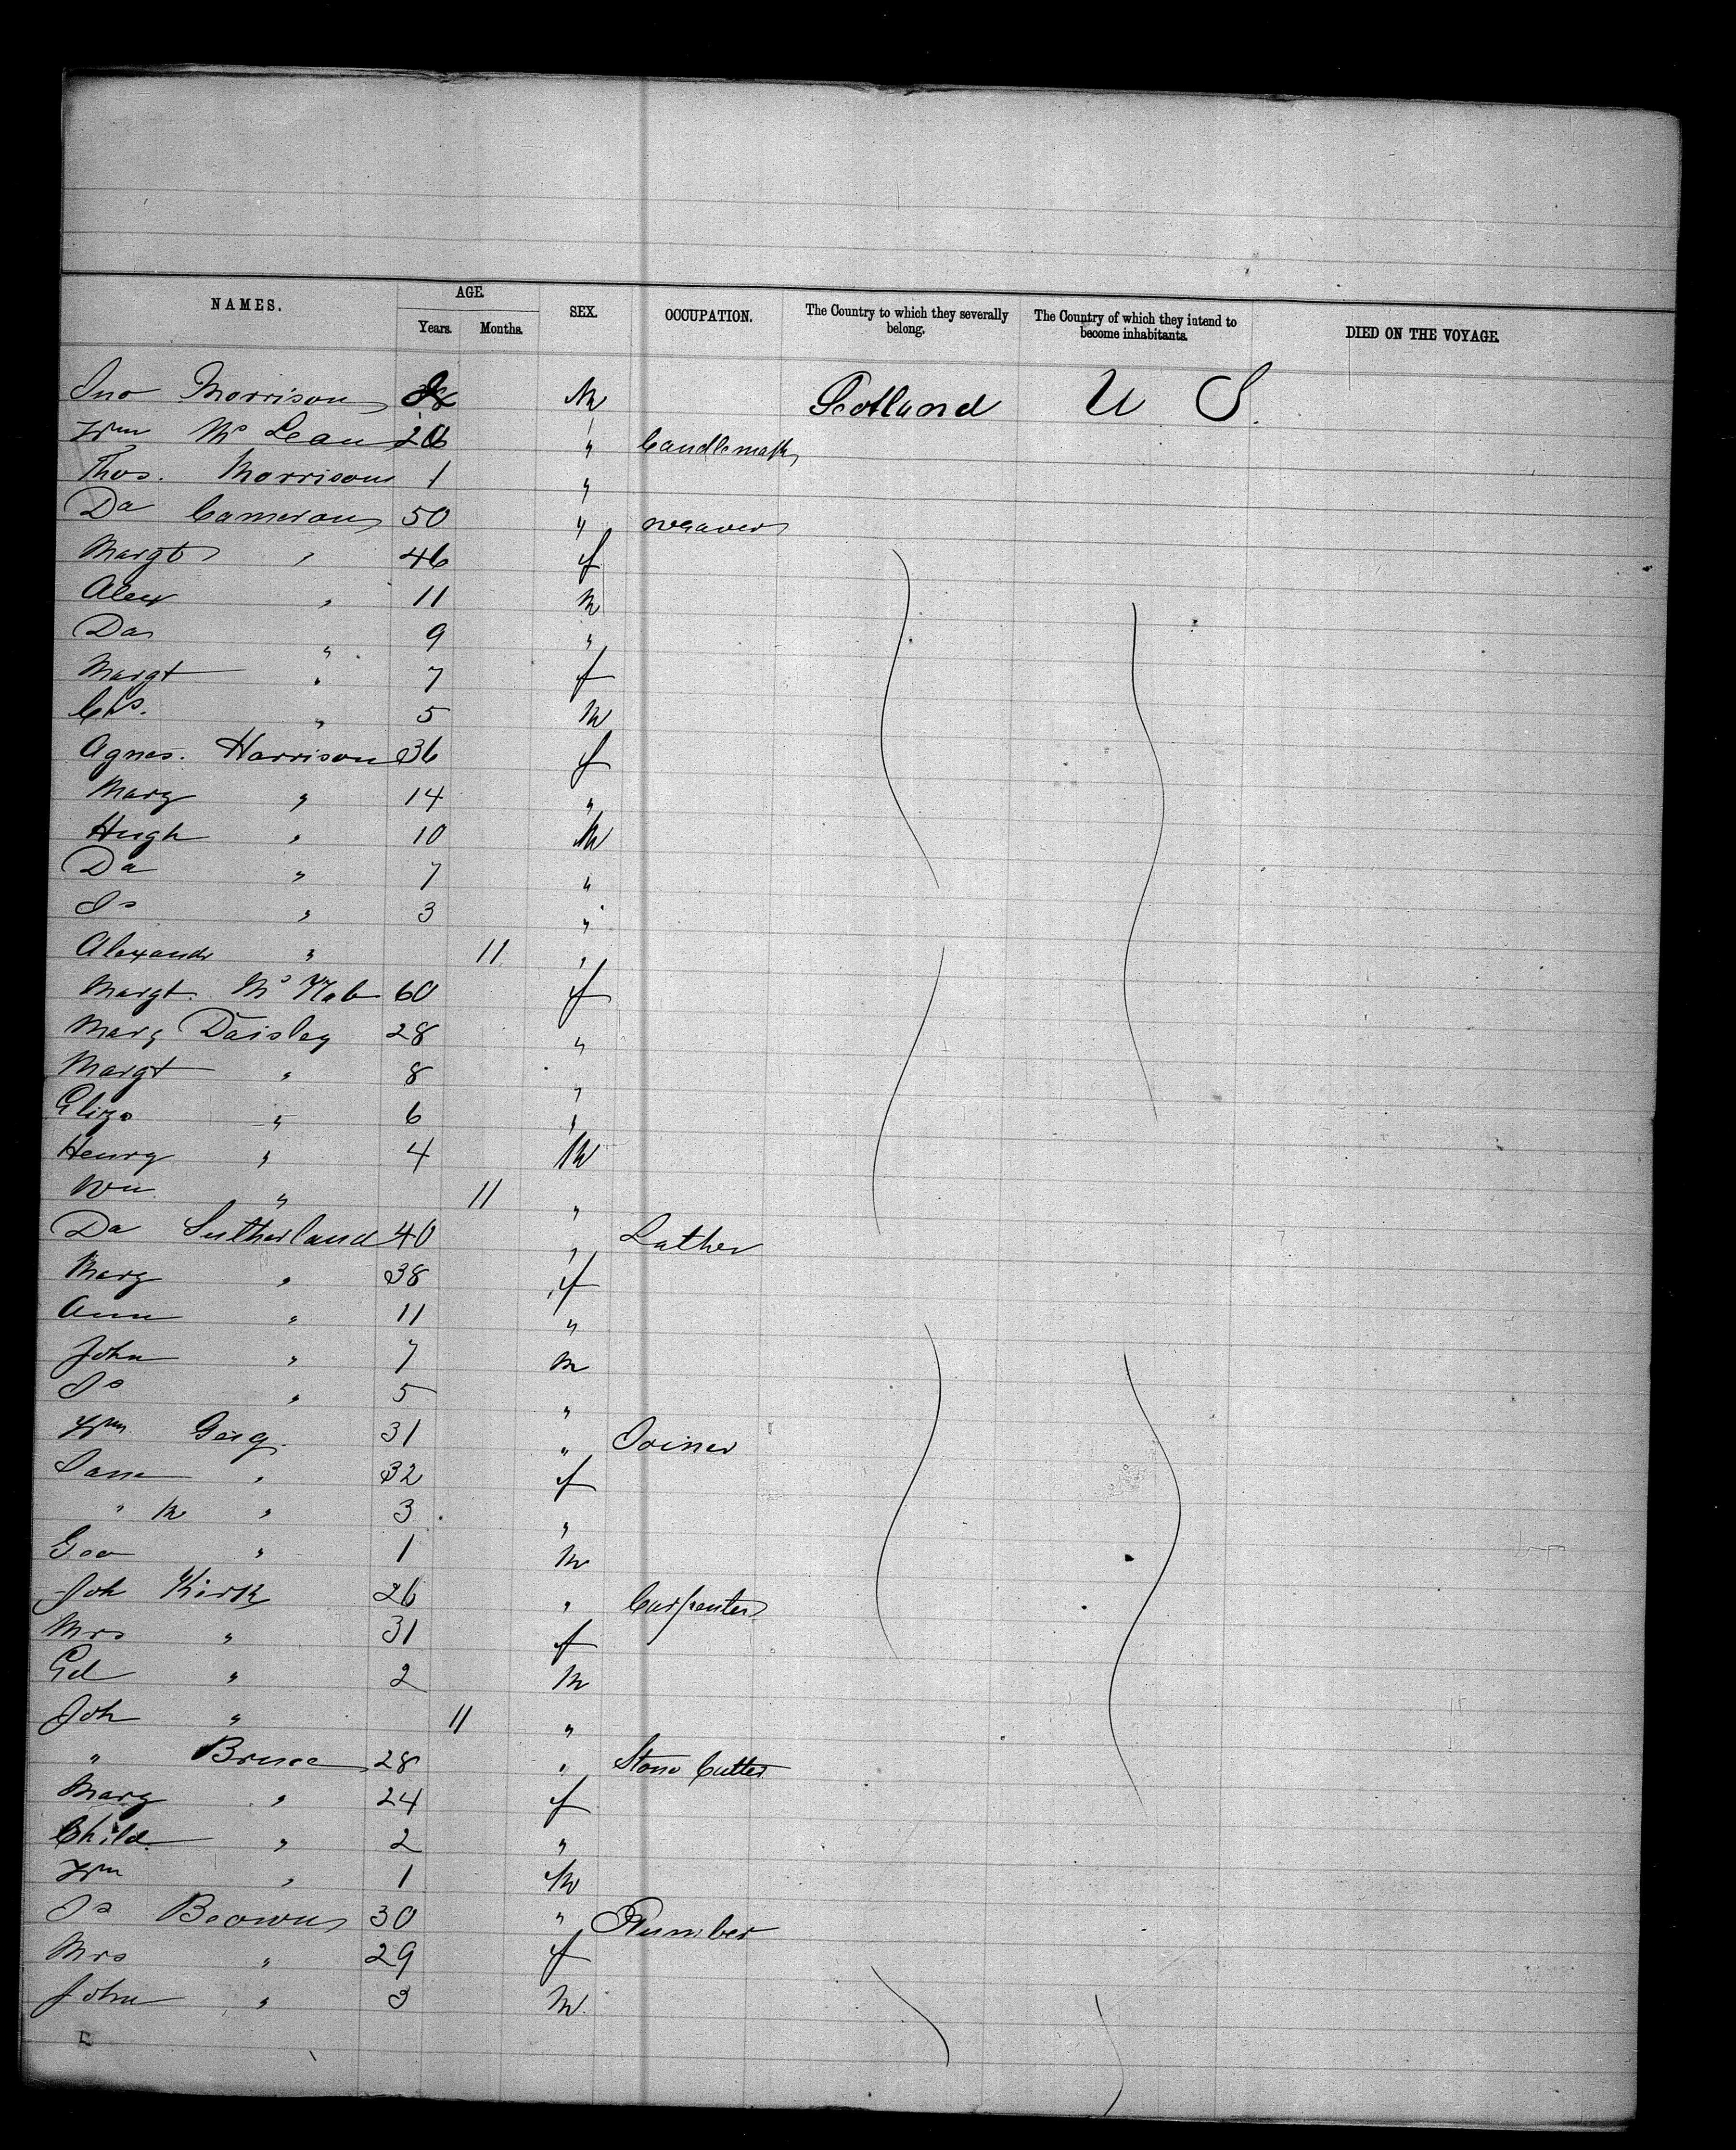 NAMES. AGE. SEX. OCCUPATION. The Country to which they severally belong. The Country of which they intend to become inhabitants. DIED ON THE VOYAGE.
Years. Months.
Jno Morrison M Scotland U S.
Wm Mc Lean 26 " Candlemakr
Thos. Morrison 1 "
Da Cameron 50 " weaver
Margt " 46 f
Alex " 11 M
Da " 9 "
Margt " 7 f
Chs. " 5 M
Agnes. Harrison 36 f
Mary " 14 "
Hugh " 10 M
Da " 7 "
Js " 3 "
Alexandr " 11 "
Margt. Mc Nab 60 f
Mary Daisley 28 "
Margt " 8 "
Eliza " 6 "
Henry " 4 M
Wm " 11 "
Da Sutherland 40 " Lather
Mary " 38 f
Ann " 11 "
John " 7 M
Js " 5 "
Wm Geig. 31 " Joiner
Jane " 32 f
" M " 3 "
Geo " 1 M
Joh Kirk 26 " Carpenter
Mrs " 31 f
Ed " 2 M
Joh " 11 "
" Bruce 28 " Stone Cutter
Mary " 24 f
Child " 2 "
Wm " 1 M
Js Brown 30 " Plumber
Mrs " 29 f
John " 3 M